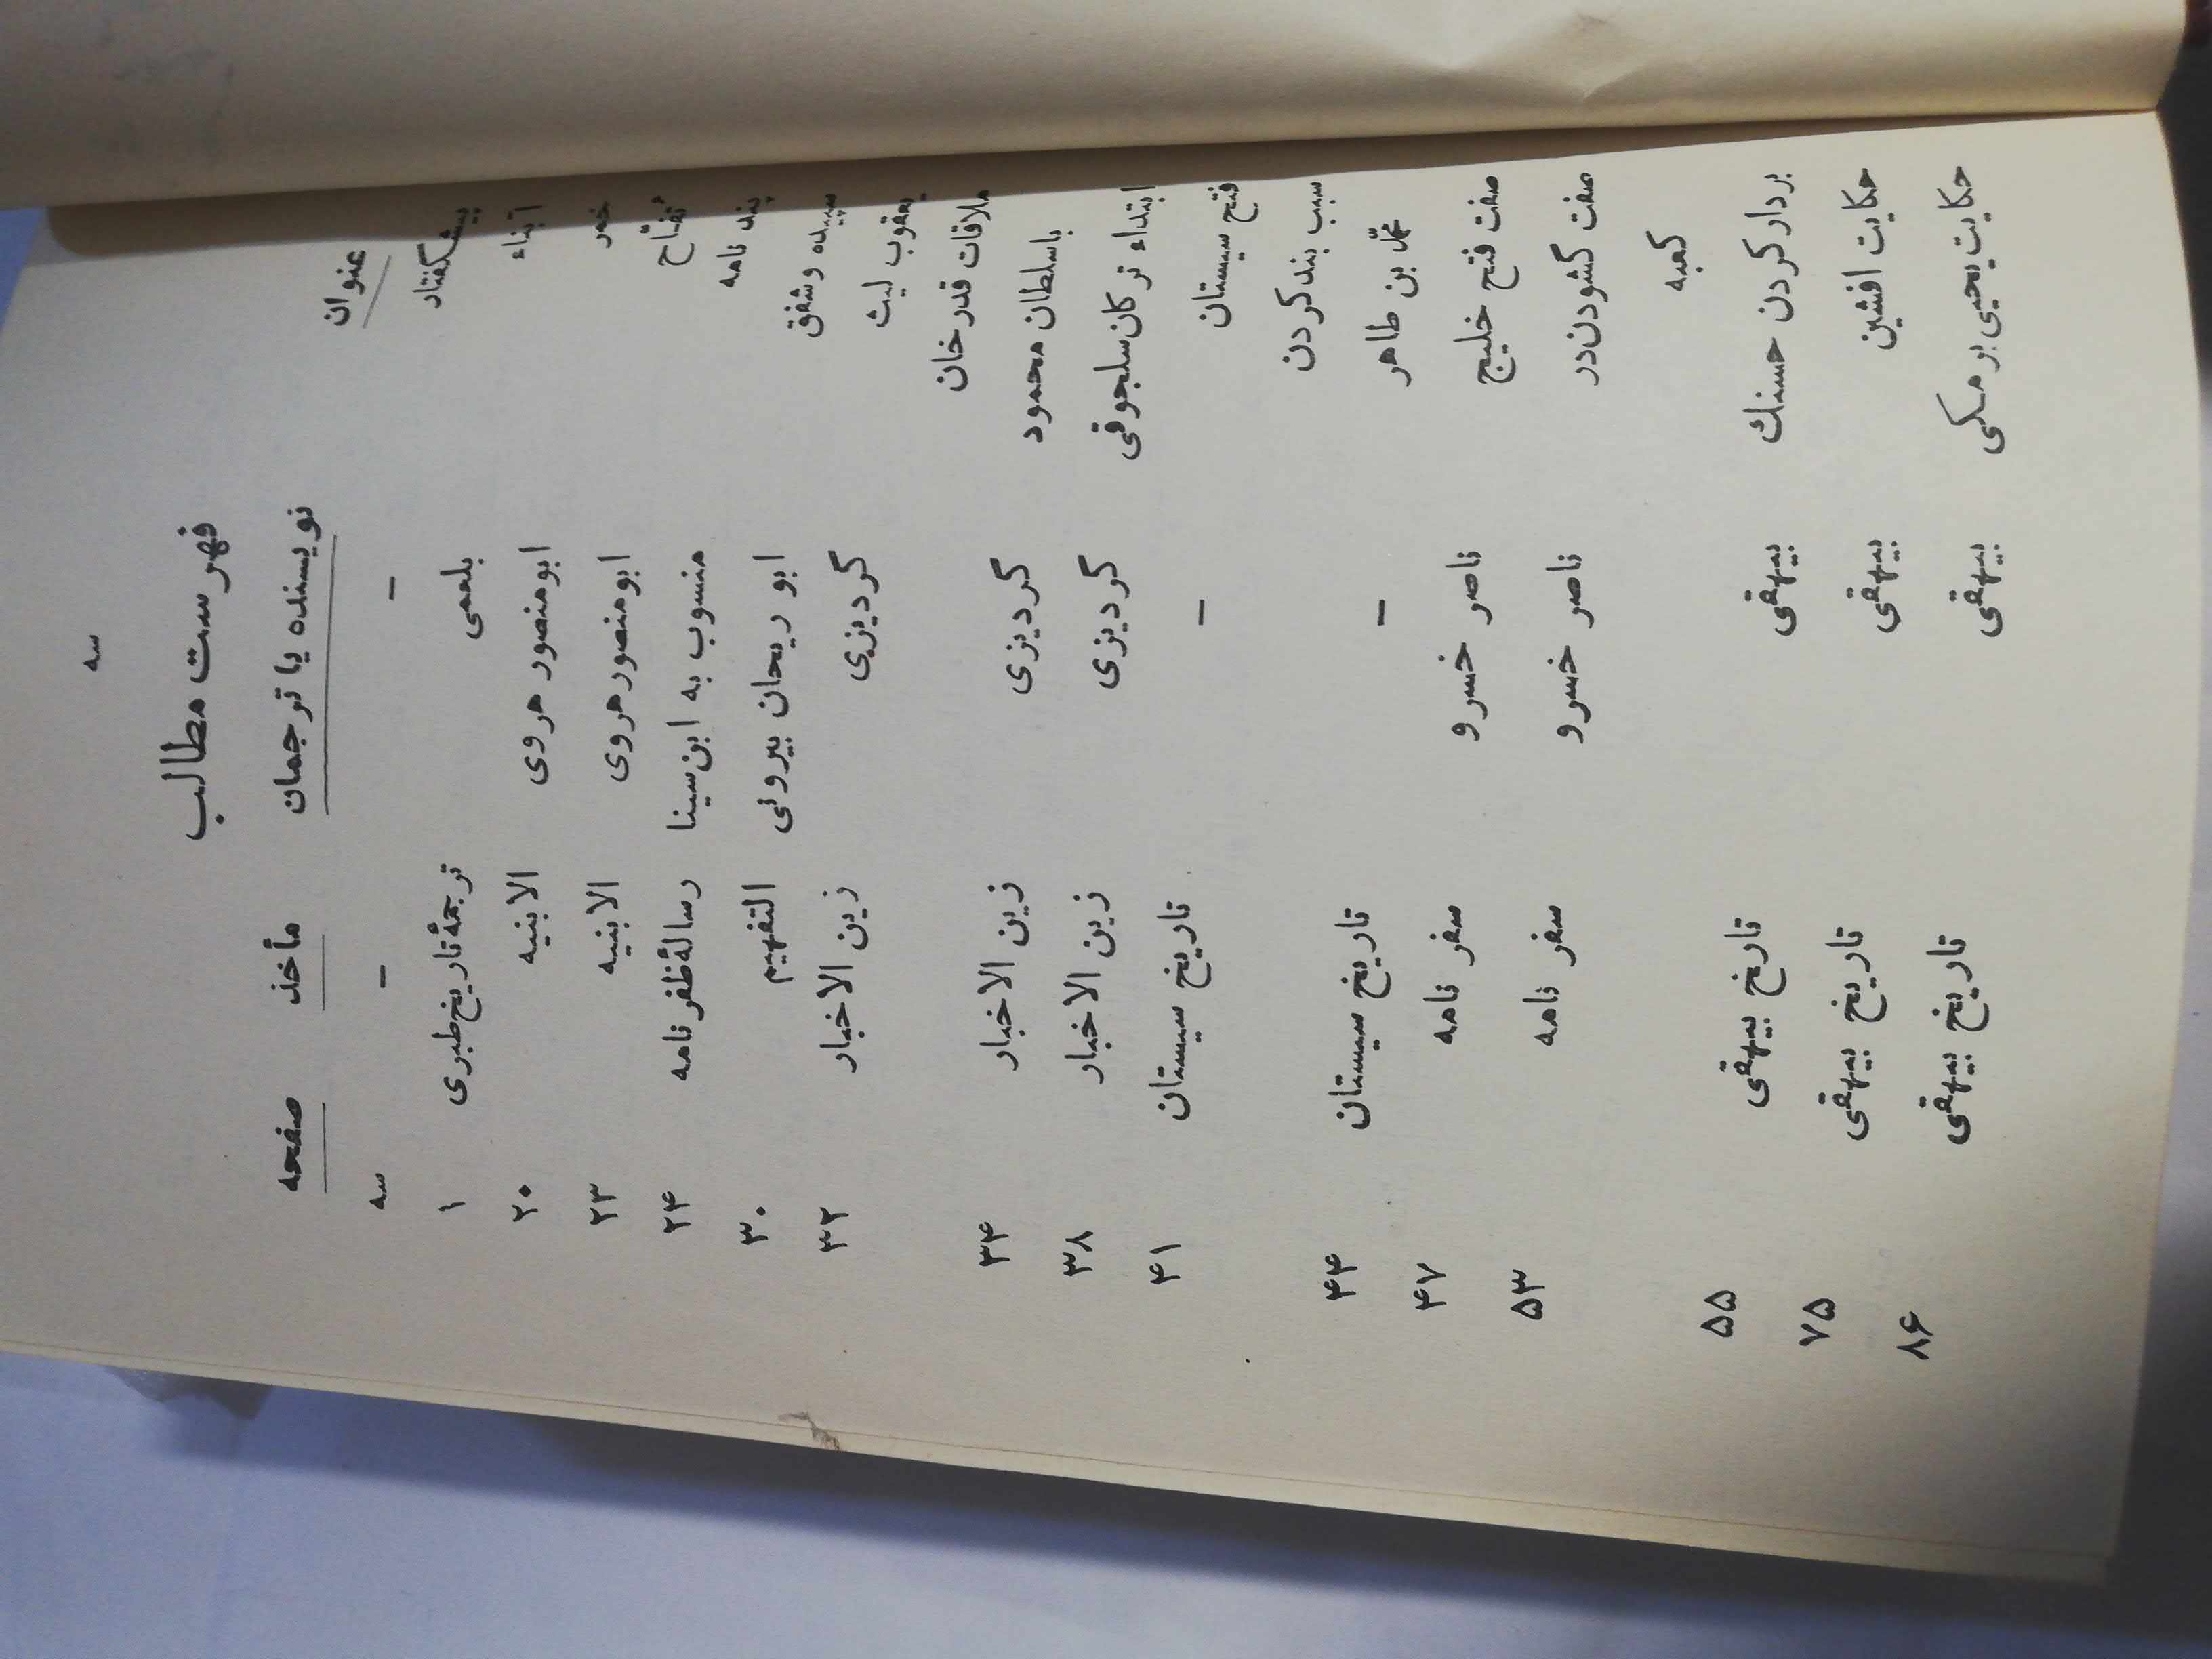 سه
فهرست مطالب
عنوان نویسنده یا ترجمان مأخذ صفحه
پیشگفتار - - سه
بلعمی ترجمهٔ تاریخ طبری ۱
خمر ابومنصور هروی الابنیه ۲۰
تفّاح ابومنصور هروی الابنیه ۲۳
پند نامه منسوب به ابن سینا رسالهٔ ظفر نامه ۲۴
سپیده و شفق ابو ریحان بیرونی التفهیم ۳۰
یعقوب لیث گردیزی زین الاخبار ۳۲
ملاقات قدر خان
با سلطان محمود گردیزی زین الاخبار ۳۴
ابتداء ترکان سلجوقی گردیزی زین الاخبار ۳۸
فتح سیستان - تاریخ سیستان ۴۱
سبب بند کردن
محمّد بن طاهر - تاریخ سیستان ۴۴
صفت فتح خلیج ناصر خسرو سفر نامه ۴۷
صفت گشودن در ناصر خسرو سفر نامه ۵۳
کعبه
بردار کردن حسنك بیهقی تاریخ بیهقی ۵۵
حکایت افشین بیهقی تاریخ بیهقی ۷۵
حکایت یحیی برمکی بیهقی تاریخ بیهقی ۸۶